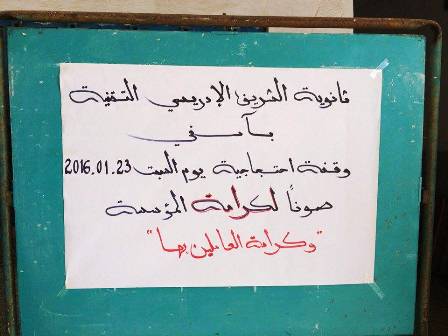 ثانوية الشريف الإدريسي التقنية
بآسفي
وقفة احتجاجية يوم السبت 2016.01.23
صونًا لكرامة المؤسسة
"وكرامة العاملين بها"